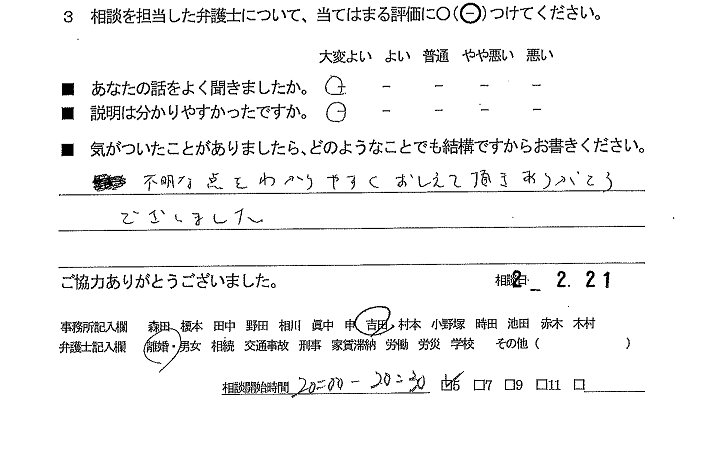 3 相談を担当した弁護士について、当てはまる評価に○(⊖)つけてください。
大変よい よい 普通 やや悪い 悪い
■ あなたの話をよく聞きましたか。 － － － － －
■ 説明は分かりやすかったですか。 － － － － －
■ 気がついたことがありましたら、どのようなことでも結構ですからお書きください。
不明な点をわかりやすくおしえて頂きありがとう
ございました
ご協力ありがとうございました。 相談日 2_ 2.21
事務所記入欄 森田 榎本 田中 野田 相川 眞中 申 吉田 村本 小野塚 時田 池田 赤木 木村
弁護士記入欄 離婚・男女 相続 交通事故 刑事 家賃滞納 労働 労災 学校 その他( )
相談開始時間 20=00 - 20=30 ☑5 □7 □9 □11 □